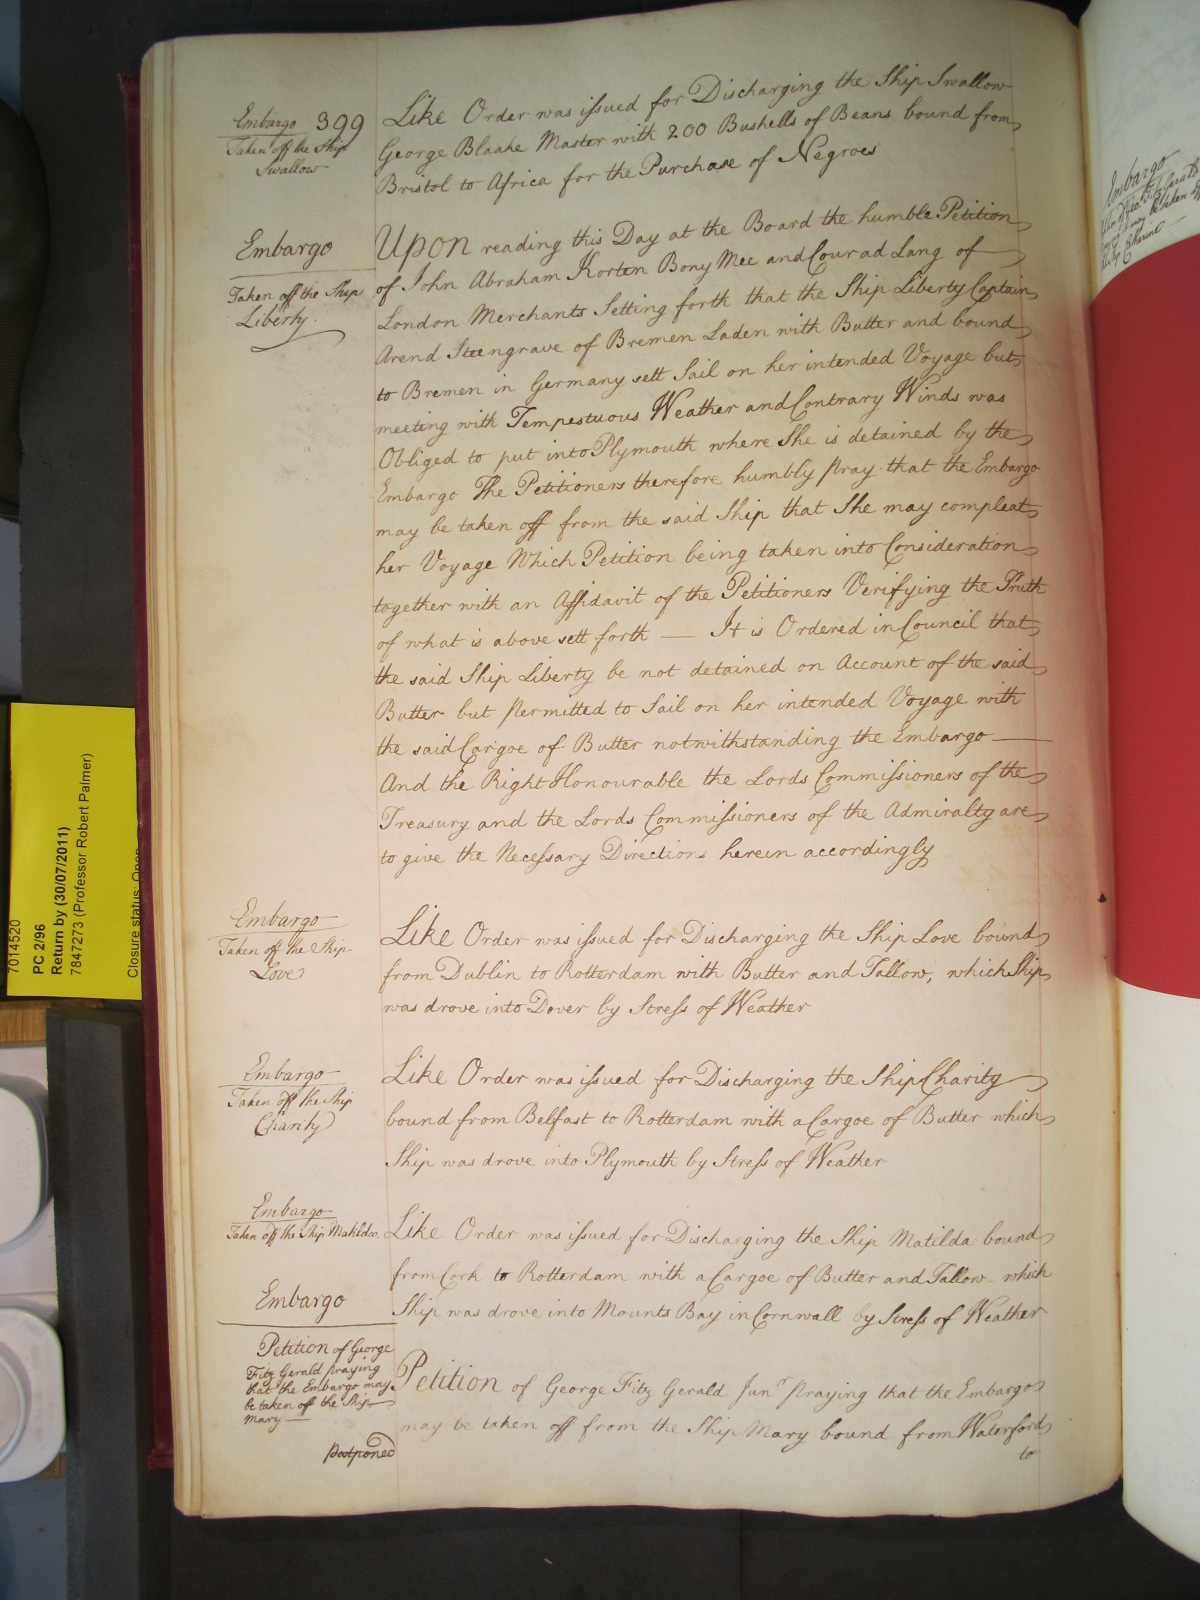 Embargo 399
Taken off the Ship
Swallow
Like Order was issued for Discharging the Ship Swallow
George Blaake Master with 200 Bushells of Beans bound from
Bristol to Africa for the Purchase of Negroes
Embargo
Taken off the Ship
Liberty.
Upon reading this Day at the Board the humble Petition
of John Abraham Korten Bony Mee and Courad Lang of
London Merchants Setting forth that the Ship Liberty Captain
Arend Steengrave of Bremen Laden with Butter and bound
to Bremen in Germany sett Sail on her intended Voyage but
meeting with Tempestuous Weather and Contrary Winds was
Obliged to put into Plymouth where She is detained by the
Embargo The Petitioners therefore humbly pray that the Embargo
may be taken off from the said Ship that She may compleat
her Voyage Which Petition being taken into Consideration
together with an Affidavit of the Petitioners Verifying the Truth
of what is above sett forth — It is Ordered in Council that
the said Ship Liberty be not detained on Account of the said
Butter but permitted to Sail on her intended Voyage with
the said Cargoe of Butter notwithstanding the Embargo —
And the Right Honourable the Lords Commissioners of the
Treasury and the Lords Commissioners of the Admiralty are
to give the Necessary Directions herein accordingly
Embargo
Taken off the Ship
Love
Like Order was issued for Discharging the Ship Love bound
from Dublin to Rotterdam with Butter and Tallow, which Ship
was drove into Dover by Stress of Weather
Embargo
Taken off the Ship
Charity
Like Order was issued for Discharging the Ship Charity
bound from Belfast to Rotterdam with a Cargoe of Butter which
Ship was drove into Plymouth by Stress of Weather
Embargo
Taken off the Ship Matilda
Like Order was issued for Discharging the Ship Matilda bound
from Cork to Rotterdam with a Cargoe of Butter and Tallow which
Ship was drove into Mounts Bay in Cornwall by Stress of Weather
Embargo
Petition of George
Fitz Gerald praying
that the Embargo may
be taken off the Ship
Mary —
postponed
Petition of George Fitz Gerald Junr praying that the Embargo
may be taken off from the Ship Mary bound from Waterford
to
7014520
PC 2/96
Return by (30/07/2011)
7847273 (Professor Robert Palmer)
Closure status: Open
Embargo